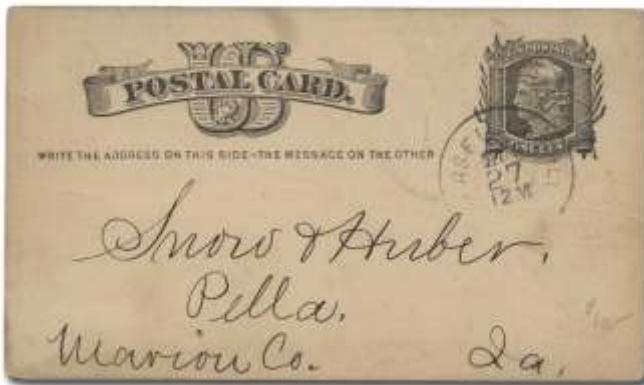 US
POSTAL CARD.
WRITE THE ADDRESS ON THIS SIDE-THE MESSAGE ON THE OTHER
17
Snow & Huber,
Pella,
Marion Co. Ia,